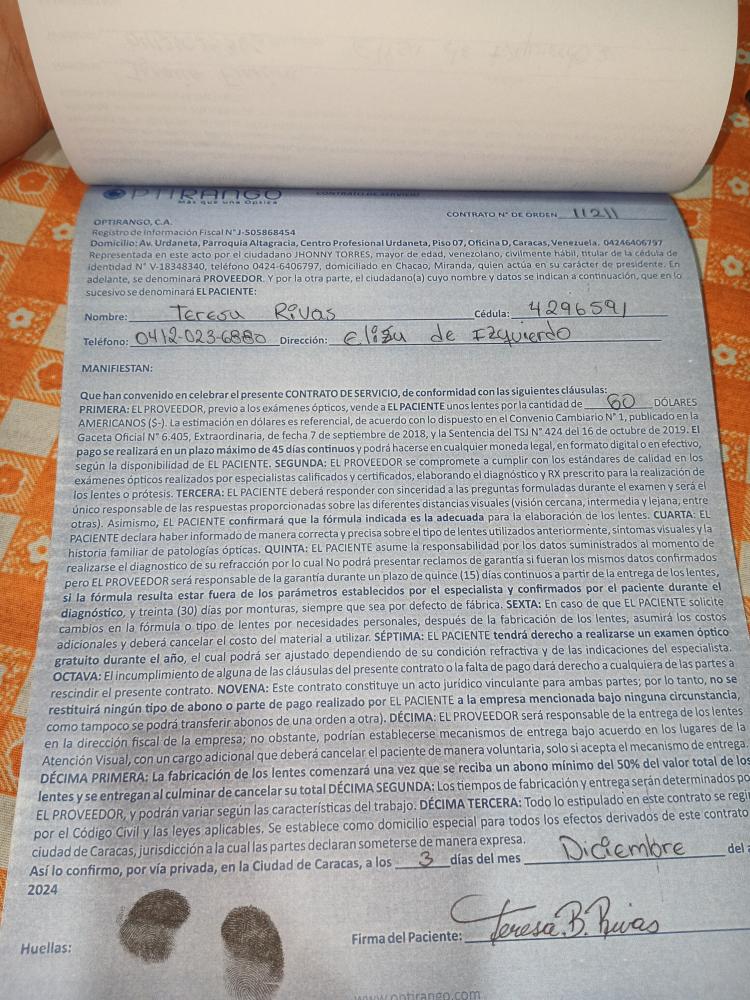 OPTIRANGO CONTRATO DE SERVICIO
Más que una Óptica
CONTRATO N° DE ORDEN 11211
OPTIRANGO, C.A.
Registro de Información Fiscal N° J-505868454
Domicilio: Av. Urdaneta, Parroquia Altagracia, Centro Profesional Urdaneta, Piso 07, Oficina D, Caracas, Venezuela. 04246406797
Representada en este acto por el ciudadano JHONNY TORRES, mayor de edad, venezolano, civilmente hábil, titular de la cédula de
identidad N° V-18348340, teléfono 0424-6406797, domiciliado en Chacao, Miranda, quien actúa en su carácter de presidente. En
adelante, se denominará PROVEEDOR. Y por la otra parte, el ciudadano(a) cuyo nombre y datos se indican a continuación, que en lo
sucesivo se denominará EL PACIENTE:
Nombre: Teresa Rivas Cédula: 4296591
Teléfono: 0412-023-6880 Dirección: Elisa de Izquierdo
MANIFIESTAN:
Que han convenido en celebrar el presente CONTRATO DE SERVICIO, de conformidad con las siguientes cláusulas:
PRIMERA: EL PROVEEDOR, previo a los exámenes ópticos, vende a EL PACIENTE unos lentes por la cantidad de 60 DÓLARES
AMERICANOS ($-). La estimación en dólares es referencial, de acuerdo con lo dispuesto en el Convenio Cambiario N° 1, publicado en la
Gaceta Oficial N° 6.405, Extraordinaria, de fecha 7 de septiembre de 2018, y la Sentencia del TSJ N° 424 del 16 de octubre de 2019. El
pago se realizará en un plazo máximo de 45 días continuos y podrá hacerse en cualquier moneda legal, en formato digital o en efectivo,
según la disponibilidad de EL PACIENTE. SEGUNDA: EL PROVEEDOR se compromete a cumplir con los estándares de calidad en los
exámenes ópticos realizados por especialistas calificados y certificados, elaborando el diagnóstico y RX prescrito para la realización de
los lentes o prótesis. TERCERA: EL PACIENTE deberá responder con sinceridad a las preguntas formuladas durante el examen y será el
único responsable de las respuestas proporcionadas sobre las diferentes distancias visuales (visión cercana, intermedia y lejana, entre
otras). Asimismo, EL PACIENTE confirmará que la fórmula indicada es la adecuada para la elaboración de los lentes. CUARTA: EL
PACIENTE declara haber informado de manera correcta y precisa sobre el tipo de lentes utilizados anteriormente, síntomas visuales y la
historia familiar de patologías ópticas. QUINTA: EL PACIENTE asume la responsabilidad por los datos suministrados al momento de
realizarse el diagnostico de su refracción por lo cual No podrá presentar reclamos de garantía si fueran los mismos datos confirmados
pero EL PROVEEDOR será responsable de la garantía durante un plazo de quince (15) días continuos a partir de la entrega de los lentes,
si la fórmula resulta estar fuera de los parámetros establecidos por el especialista y confirmados por el paciente durante el
diagnóstico, y treinta (30) días por monturas, siempre que sea por defecto de fábrica. SEXTA: En caso de que EL PACIENTE solicite
cambios en la fórmula o tipo de lentes por necesidades personales, después de la fabricación de los lentes, asumirá los costos
adicionales y deberá cancelar el costo del material a utilizar. SÉPTIMA: EL PACIENTE tendrá derecho a realizarse un examen óptico
gratuito durante el año, el cual podrá ser ajustado dependiendo de su condición refractiva y de las indicaciones del especialista.
OCTAVA: El incumplimiento de alguna de las cláusulas del presente contrato o la falta de pago dará derecho a cualquiera de las partes a
rescindir el presente contrato. NOVENA: Este contrato constituye un acto jurídico vinculante para ambas partes; por lo tanto, no se
restituirá ningún tipo de abono o parte de pago realizado por EL PACIENTE a la empresa mencionada bajo ninguna circunstancia,
como tampoco se podrá transferir abonos de una orden a otra). DÉCIMA: EL PROVEEDOR será responsable de la entrega de los lentes
en la dirección fiscal de la empresa; no obstante, podrían establecerse mecanismos de entrega bajo acuerdo en los lugares de la
Atención Visual, con un cargo adicional que deberá cancelar el paciente de manera voluntaria, solo si acepta el mecanismo de entrega.
DÉCIMA PRIMERA: La fabricación de los lentes comenzará una vez que se reciba un abono mínimo del 50% del valor total de los
lentes y se entregan al culminar de cancelar su total DÉCIMA SEGUNDA: Los tiempos de fabricación y entrega serán determinados po
EL PROVEEDOR, y podrán variar según las características del trabajo. DÉCIMA TERCERA: Todo lo estipulado en este contrato se regi
por el Código Civil y las leyes aplicables. Se establece como domicilio especial para todos los efectos derivados de este contrato
ciudad de Caracas, jurisdicción a la cual las partes declaran someterse de manera expresa.
Así lo confirmo, por vía privada, en la Ciudad de Caracas, a los 3 días del mes Diciembre del a
2024
Huellas: Firma del Paciente: Teresa.B.Rivas
www.optirango.com